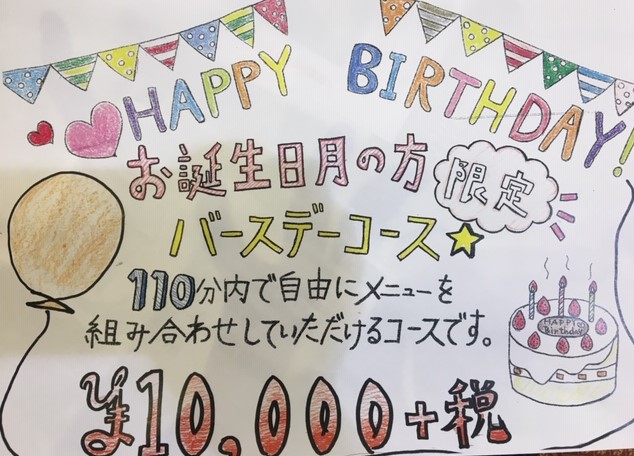 HAPPY BIRTHDAY!
お誕生日月の方 限定
バースデーコース★
110分内で自由にメニューを
組み合わせしていただけるコースです。
HAPPY
Birthday
¥10,000+税